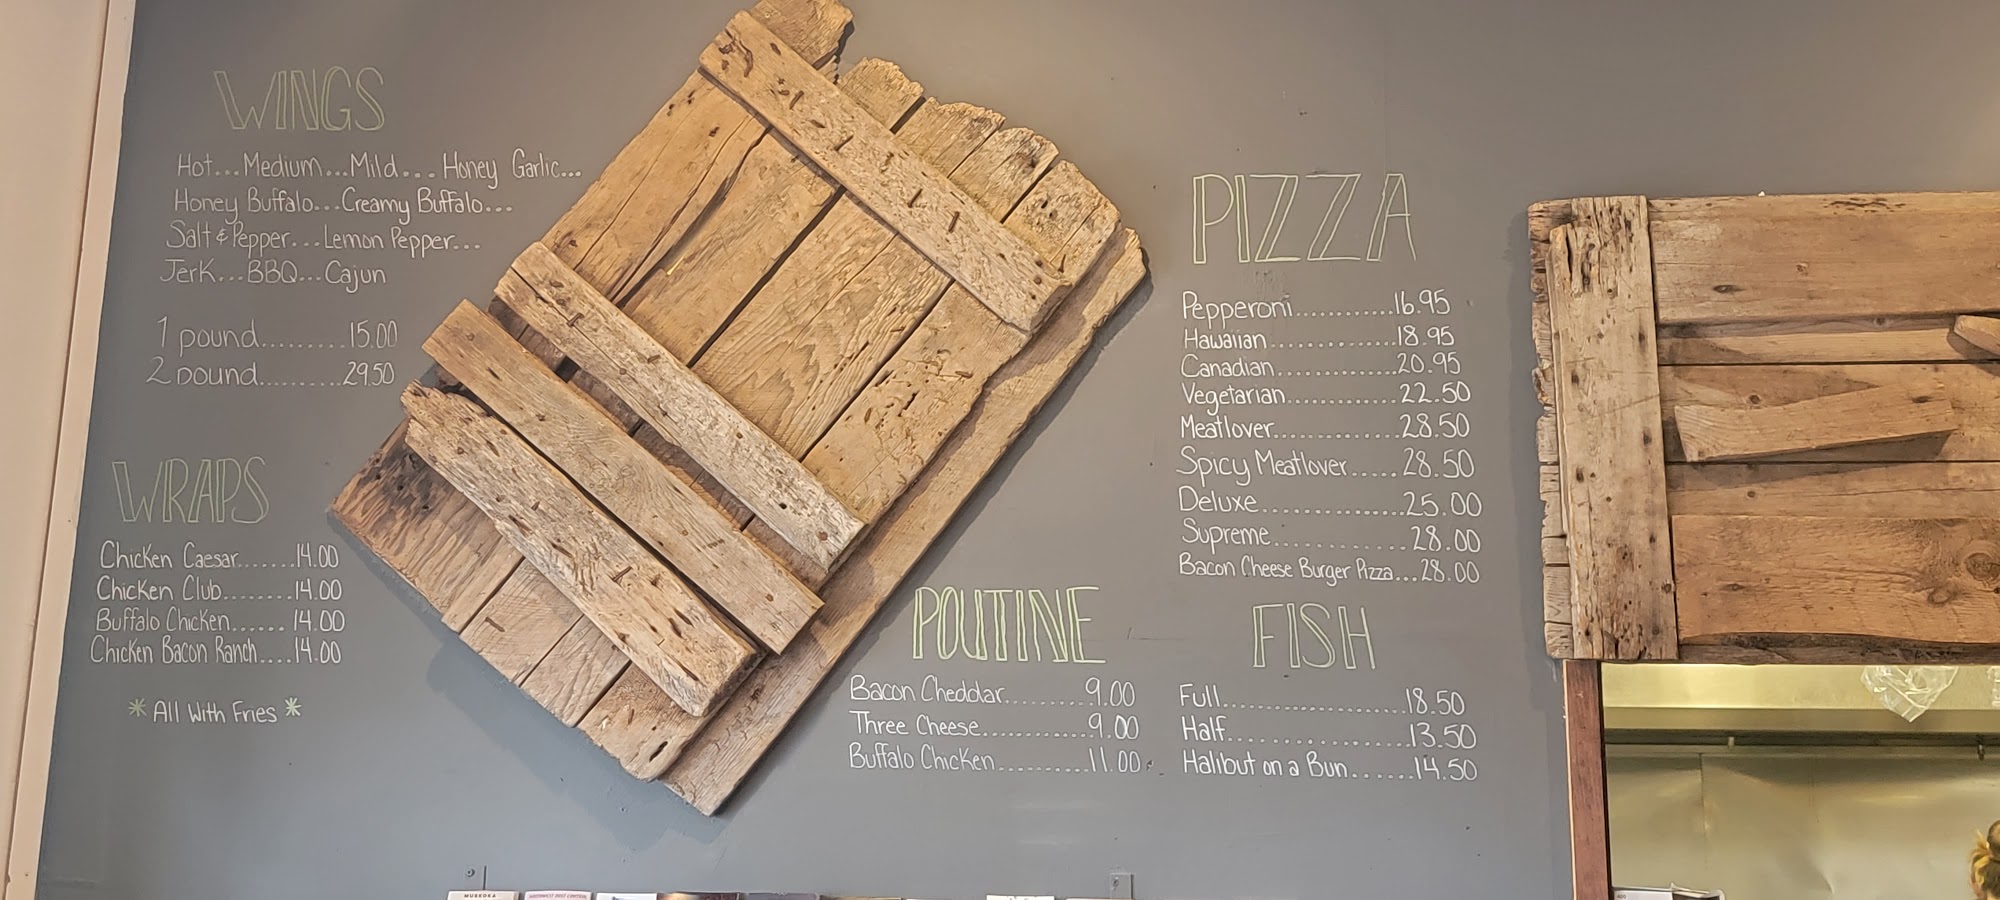 WINGS
Hot...Medium...Mild...Honey Garlic...
Honey Buffalo...Creamy Buffalo...
Salt & Pepper...Lemon Pepper...
Jerk...BBQ...Cajun
1 pound.........15.00
2 pound.........29.50
WRAPS
Chicken Caesar.......14.00
Chicken Club.........14.00
Buffalo Chicken...... 14.00
Chicken Bacon Ranch....14.00
*All With Fries*
POUTINE
Bacon Cheddar..........9.00
Three Cheese............9.00
Buffalo Chicken..........11.00
PIZZA
Pepperoni............16.95
Hawaiian..............18.95
Canadian.............20.95
Vegetarian............22.50
Meatlover.............28.50
Spicy Meatlover......28.50
Deluxe................25.00
Supreme..............28.00
Bacon Cheese Burger Pizza...28.00
FISH
Full...................18.50
Half...................13.50
Halibut on a Bun.......14.50
MUSKOKA